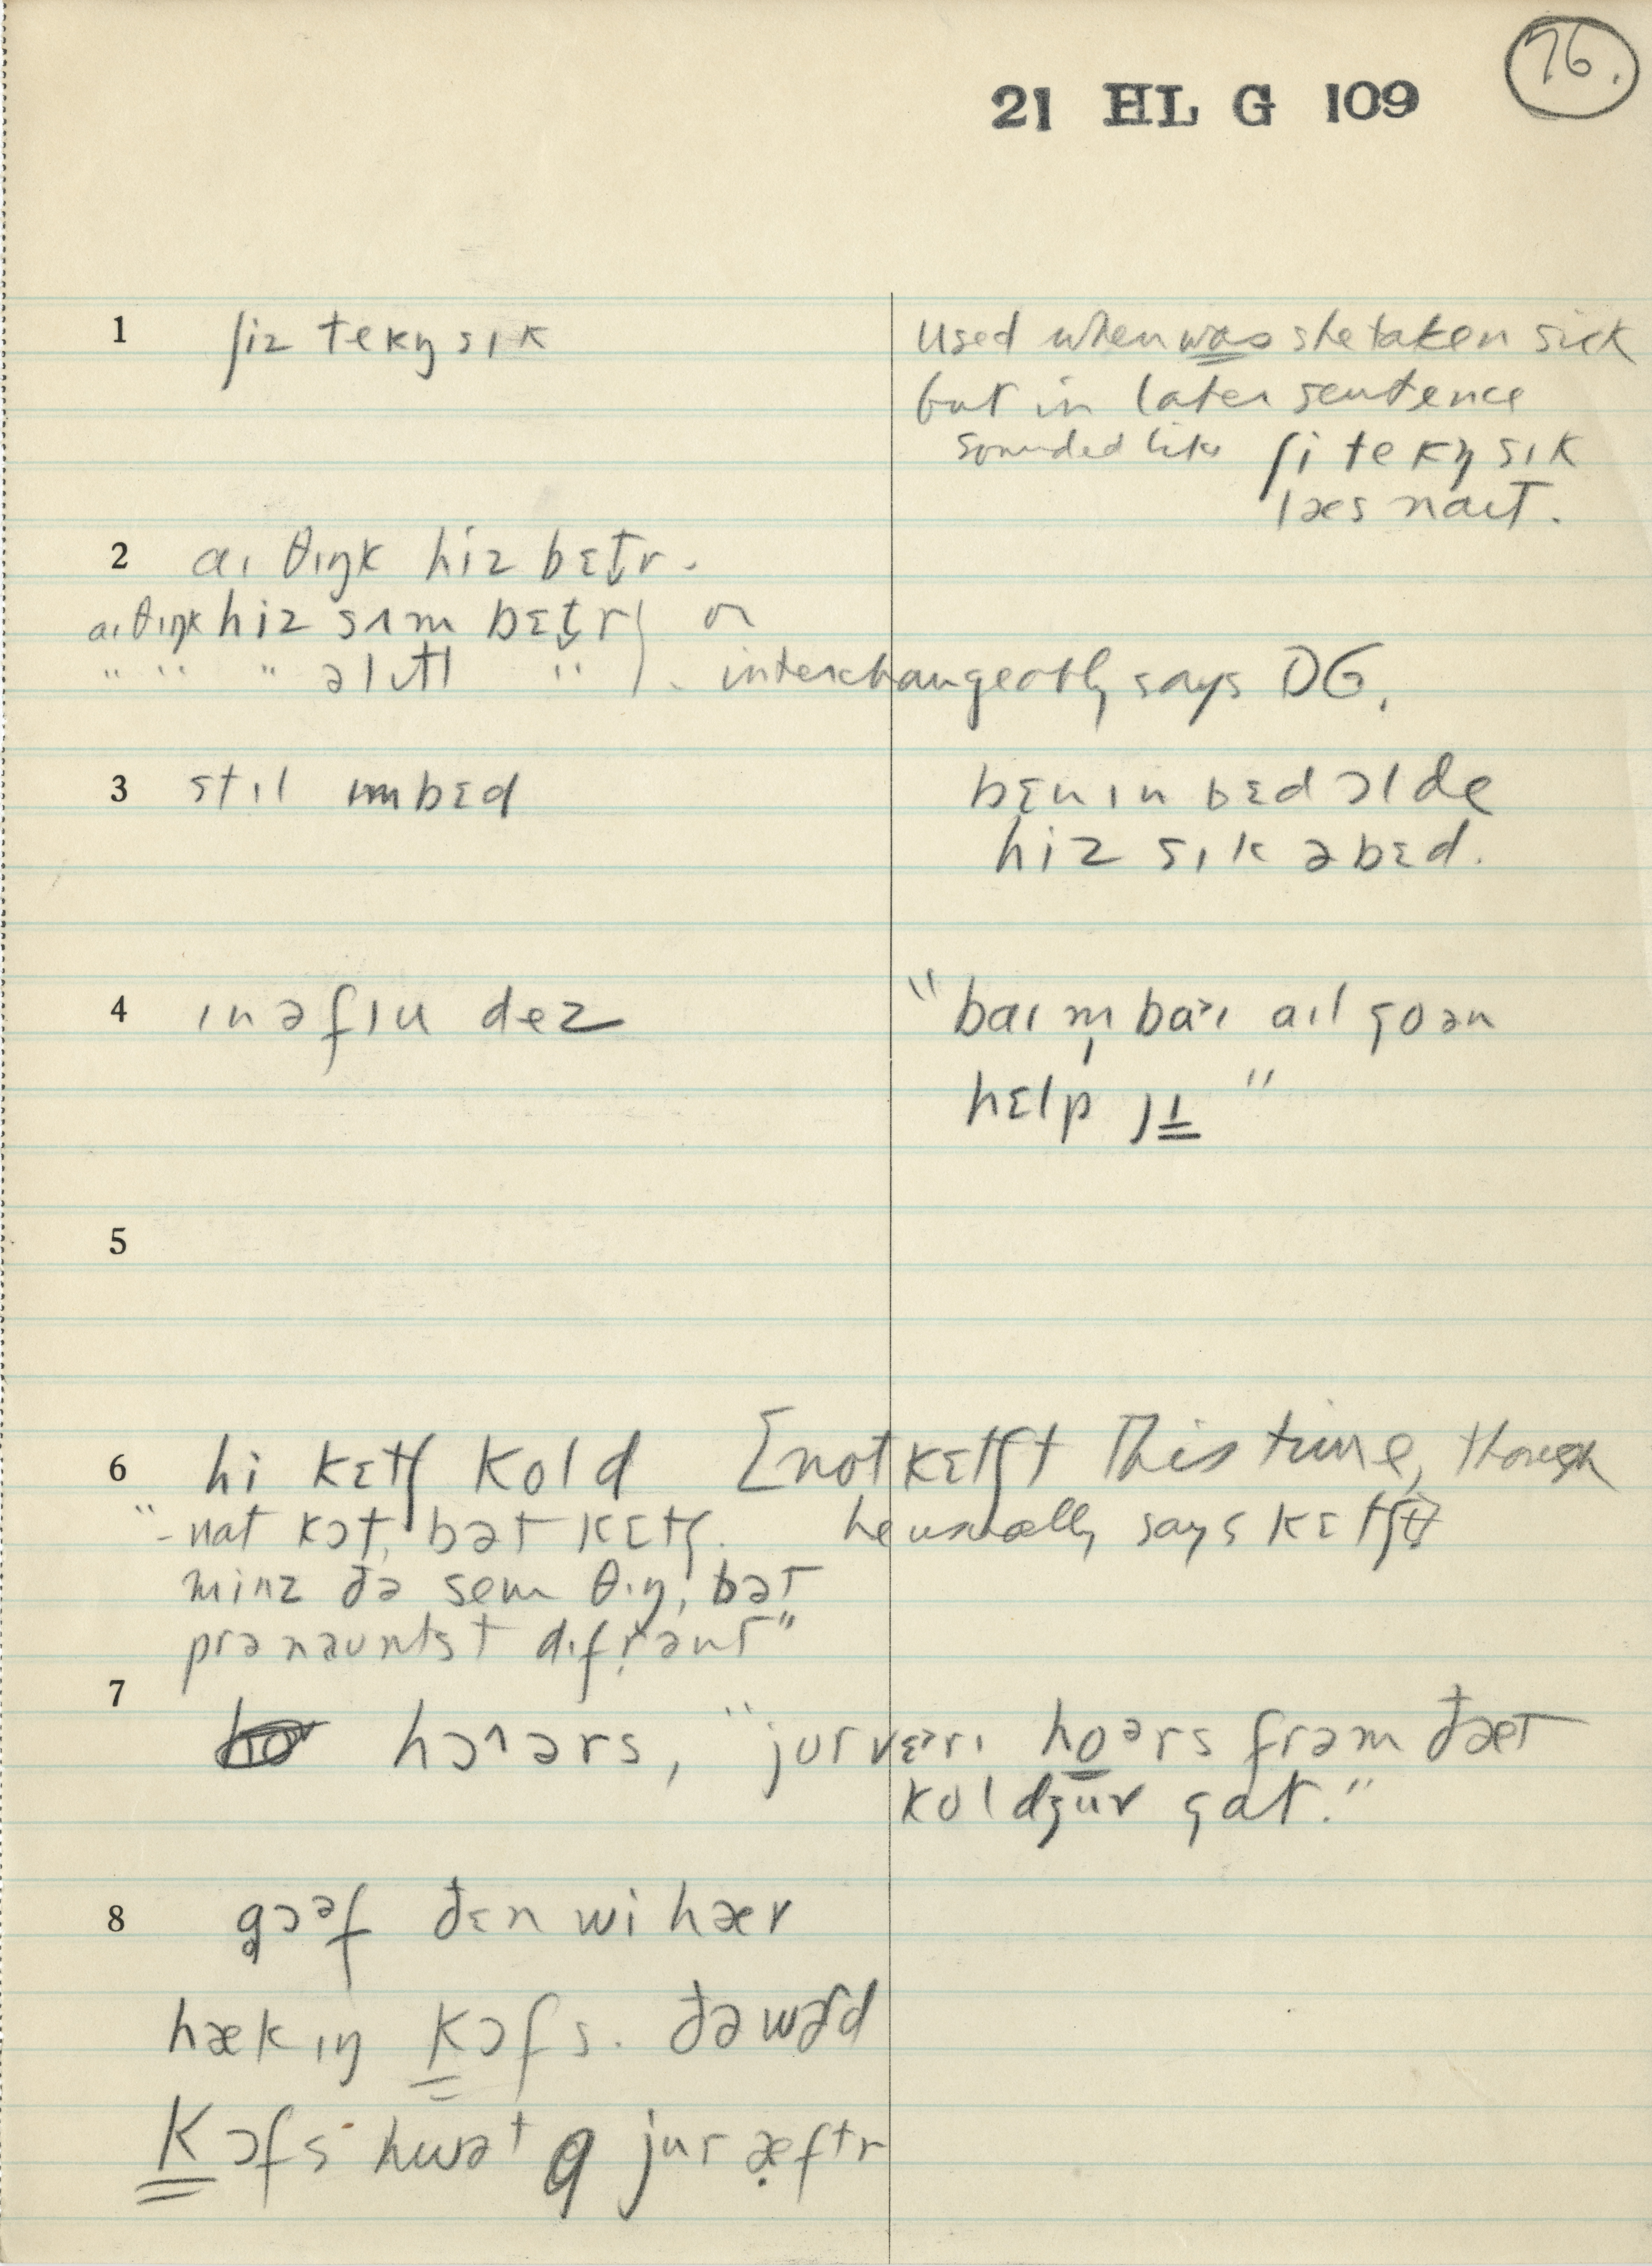 76.
21 HL G 109
1 ʃiz tekŋ sɪk
used when was she taken sick
but in later sentence
sounded like ʃi tekŋ sɪk
læs naɪt.
2 aɪ θɪŋk hiz bɛt̬r.
aɪ θɪŋk hiz sʌm bɛt̬r) or
" " " əlɪtl " ). interchangeably says DG.
3 stɪl ɪmbɛd
bɛn ɪn bɛd ɔl de
hiz sɪk əbɛd.
4 ɪn ə fɪu dez
"baɪm̩baˑɪ aɪl go ən
help jɪ"
5
6 hi kɛtʃ kold [not kɛtʃt This time, though
"- nat kɔt, bət kɛtʃ. he usually says kɛtʃt]
minz ðə sem θɪŋ, bət
prənaʊntst dɪfrənt"
7 hɔˆərs, "jur vɛˑrɪ hoərs frəm ðæt
koldʒuv gat."
8 gɔəf ðɛn wi hær
hækɪŋ kɔfs. ðə wərd
kɔfs hwət jur æftr